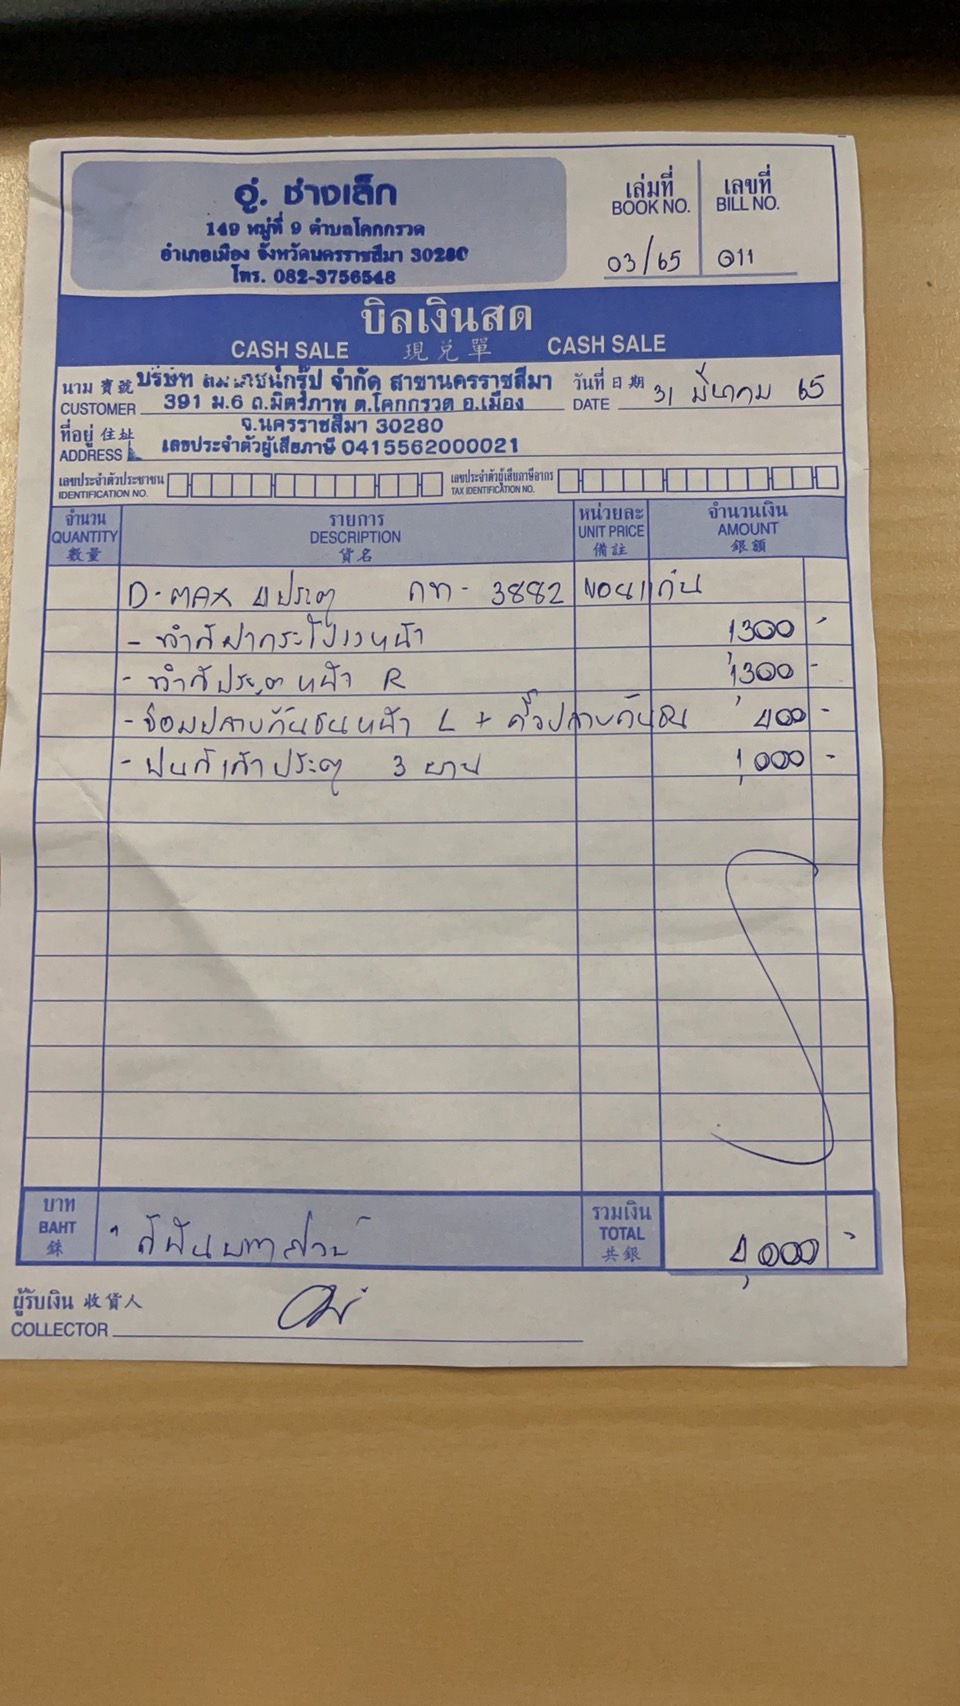 อู่. ช่างเล็ก
149 หมู่ที่ 9 ตำบลโคกกรวด
อำเภอเมือง จังหวัดนครราชสีมา 30280
โทร. 082-3756548
เล่มที่ เลขที่
BOOK NO. BILL NO.
03/65 011
บิลเงินสด
CASH SALE 現兌單 CASH SALE
นาม 寶號 บริษัท จำกัด สาขานครราชสีมา วันที่ 日期 31 มีนาคม 65
CUSTOMER 391 ม.6 ถ.มิตรภาพ ต.โคกกรวด อ.เมือง DATE
ที่อยู่ 住址 จ.นครราชสีมา 30280
ADDRESS เลขประจำตัวผู้เสียภาษี 0415562000021
เลขประจำตัวประชาชน เลขประจำตัวผู้เสียภาษีอากร
IDENTIFICATION NO. TAX IDENTIFICATION NO.
จำนวน รายการ หน่วยละ จำนวนเงิน
QUANTITY DESCRIPTION UNIT PRICE AMOUNT
數量 貨名 備註 銀額
D-MAX 4 ประตู กท - 3882 ขอนแก่น
- ทำสีฝากระโปรงหน้า 1,300 -
- ทำสีประตูหน้า R 1,300 -
- ซ่อมปลายกันชนหน้า L + คิ้วปลายกันชน 400 -
- พ่นสีเสาประตู 3 บาน 1,000 -
บาท รวมเงิน
BAHT สี่พันบาทถ้วน TOTAL 4,000 -
銖 共銀
ผู้รับเงิน 收貨人
COLLECTOR